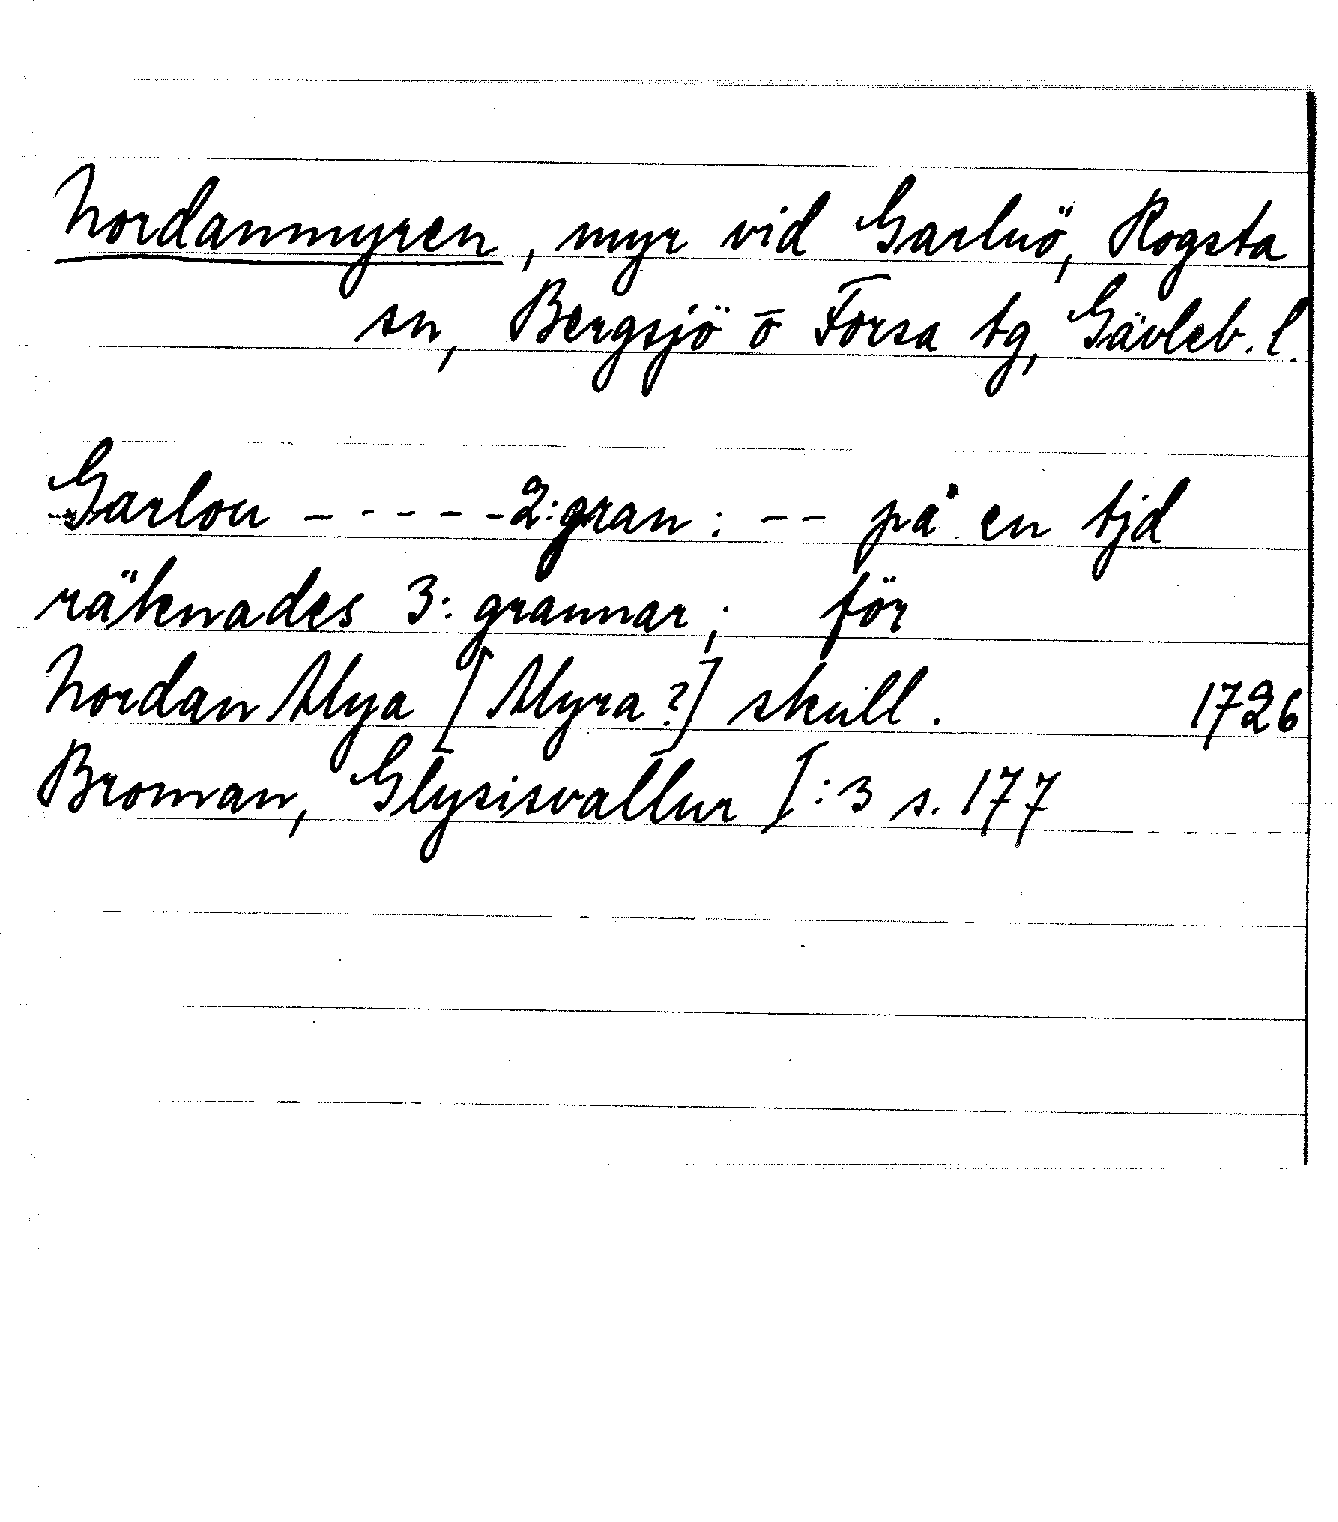 Nordanmyren, myr vid Garlnö, Rogsta
sn, Bergsjö o Forsa tg, Gävleb. l.
Garlou - - - - - 2: gran: - - på en tjd
räknades 3: grannar; för
Nordan Mya [Myra?] skull. 1726
Broman, Glysisvallur I:3 s. 177